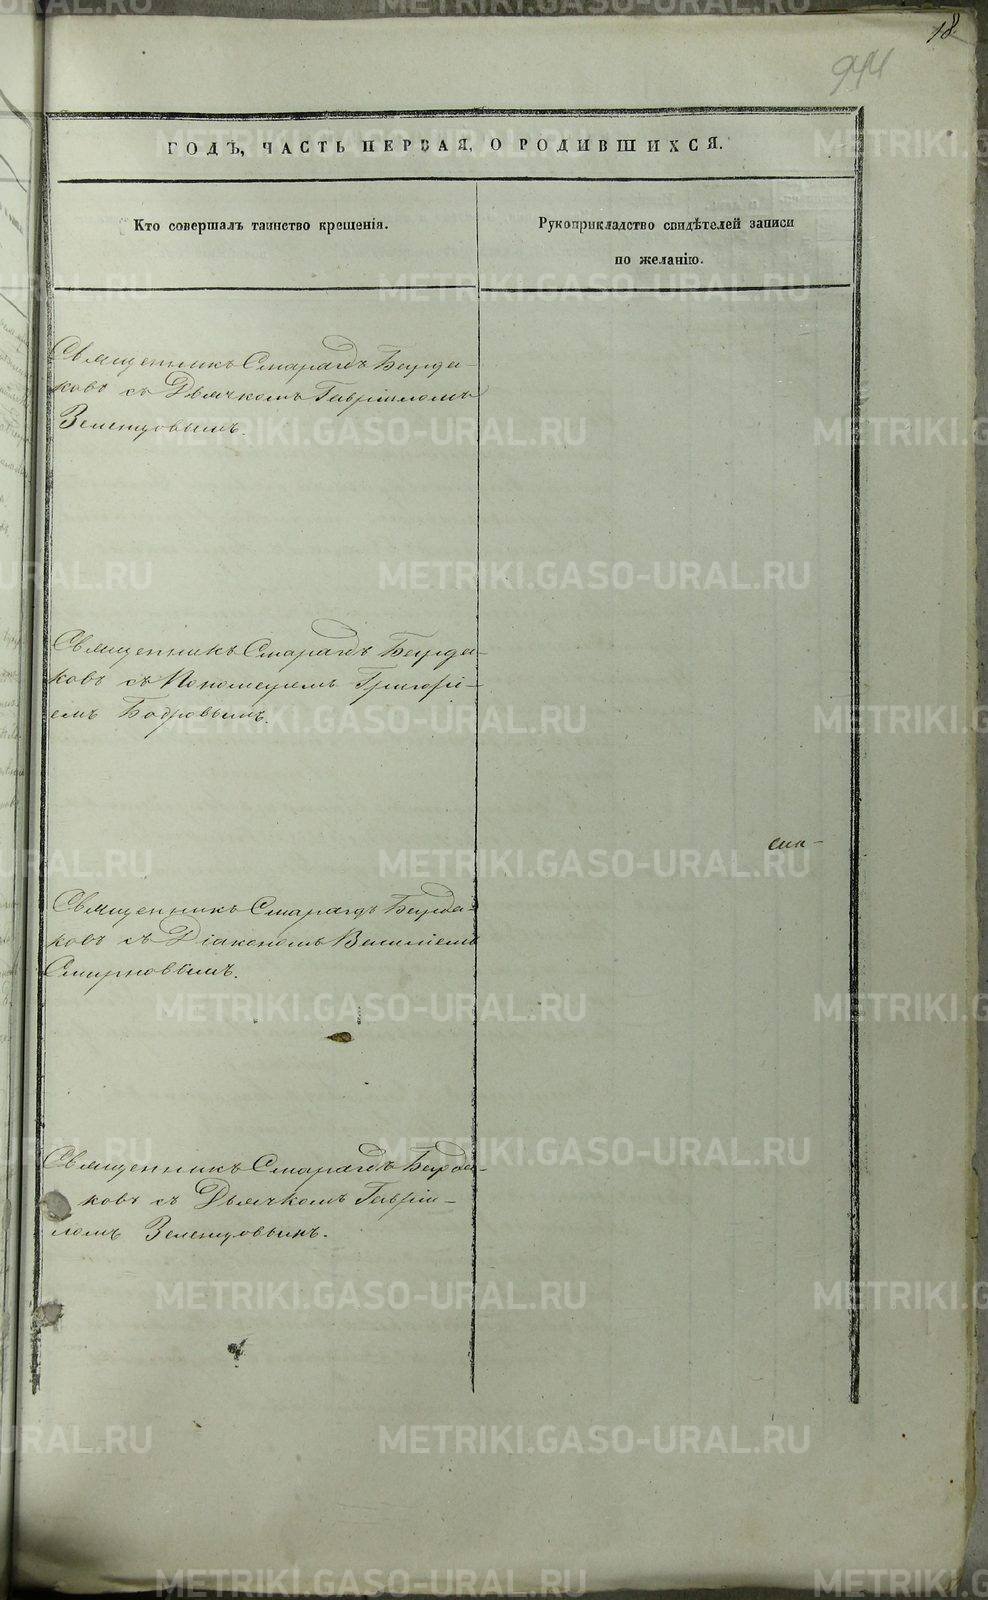 18
944
ГОДЪ, ЧАСТЬ ПЕРВАЯ, О РОДИВШИХСЯ.
Кто совершалъ таинство крещенія.
Рукоприкладство свидѣтелей записи
по желанію.
Священникъ Смарагдъ Бурда-
ковъ съ Дьячкомъ Гавріиломъ
Зеленцовымъ.
Священникъ Смарагдъ Бурда-
ковъ съ Пономаремъ Григорі-
емъ Бобровымъ.
Священникъ Смарагдъ Бурда-
ковъ съ Діакономъ Василіемъ
Смирновымъ.
Священникъ Смарагдъ Бурда-
ковъ съ Дьячкомъ Гавріи-
ломъ Зеленцовымъ.
METRIKI.GASO-URAL.RU